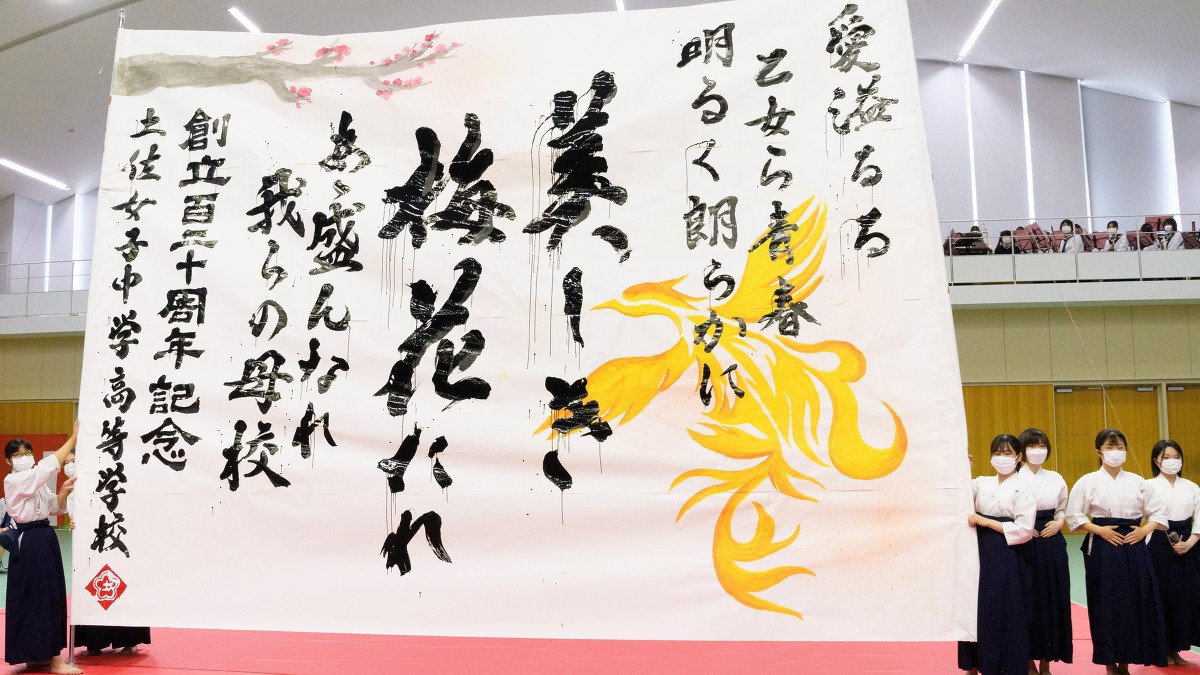 愛溢るる
乙女ら青春
明るく朗らかに
美しき
梅花たれ
あゝ盛んなれ
我らの母校
創立百二十周年記念
土佐女子中学高等学校